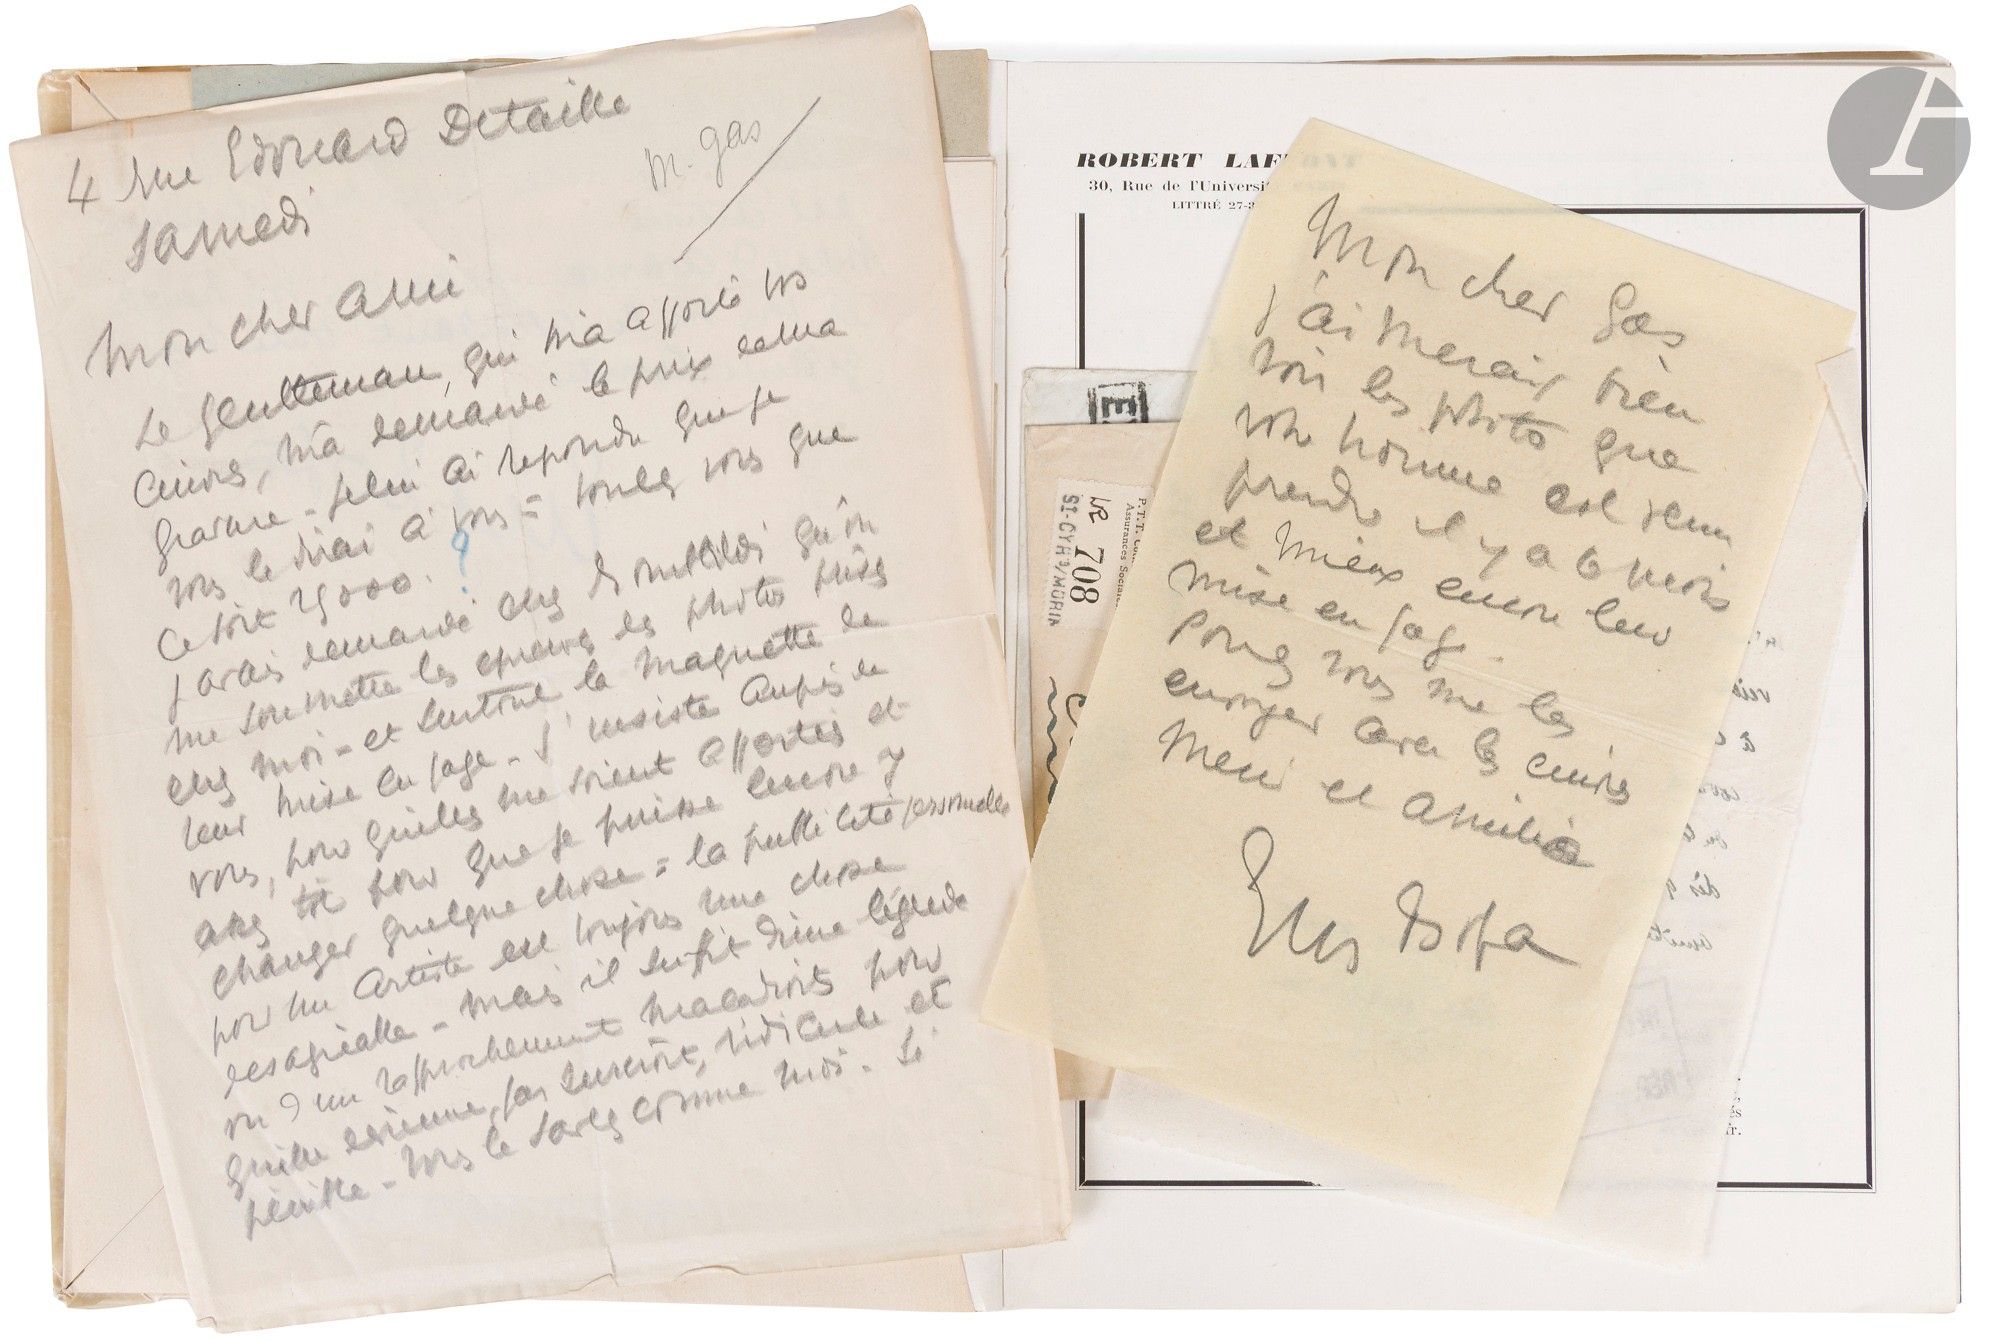 4 rue Edouard Detaille
Samedi
M. Gas
Mon cher Ami
Le gentleman, qui m'a apporté vos
cuivres, m'a demandé le prix de ma
gravure - je lui ai repondu que je
vous le dirai à vous = voulez vous que
ce soit 25000. ?
J'avais demandé chez qu'on
me soumette les épreuves des photos prises
chez moi - et surtout la maquette de
leur mise en page - J'insiste auprès de
vous, pour qu'elles me soient apportées et
assez tôt pour que je puisse encore y
changer quelque chose = la publicité personnelle
pour un Artiste est toujours une chose
desagréable - mais il suffit d'une légende
ou d'un rapprochement maladroits pour
qu'elle devienne, par surcroît, ridicule et
pénible - Vous le savez comme moi - Si
ROBERT LAF
30, Rue de l'Universi
LITTRÉ 27-3
Mon cher Gas
j'aimerais bien
voir les photo que
votre homme est venu
prendre il y a le mois
et mieux encore leur
mise en page.
Pouvez vous me les
envoyer avec les cuivres
Merci et amitiés
Gus Bofa
P.T.T.
Assurances Sociales
708
ST-CYR S/MORIN
fr.